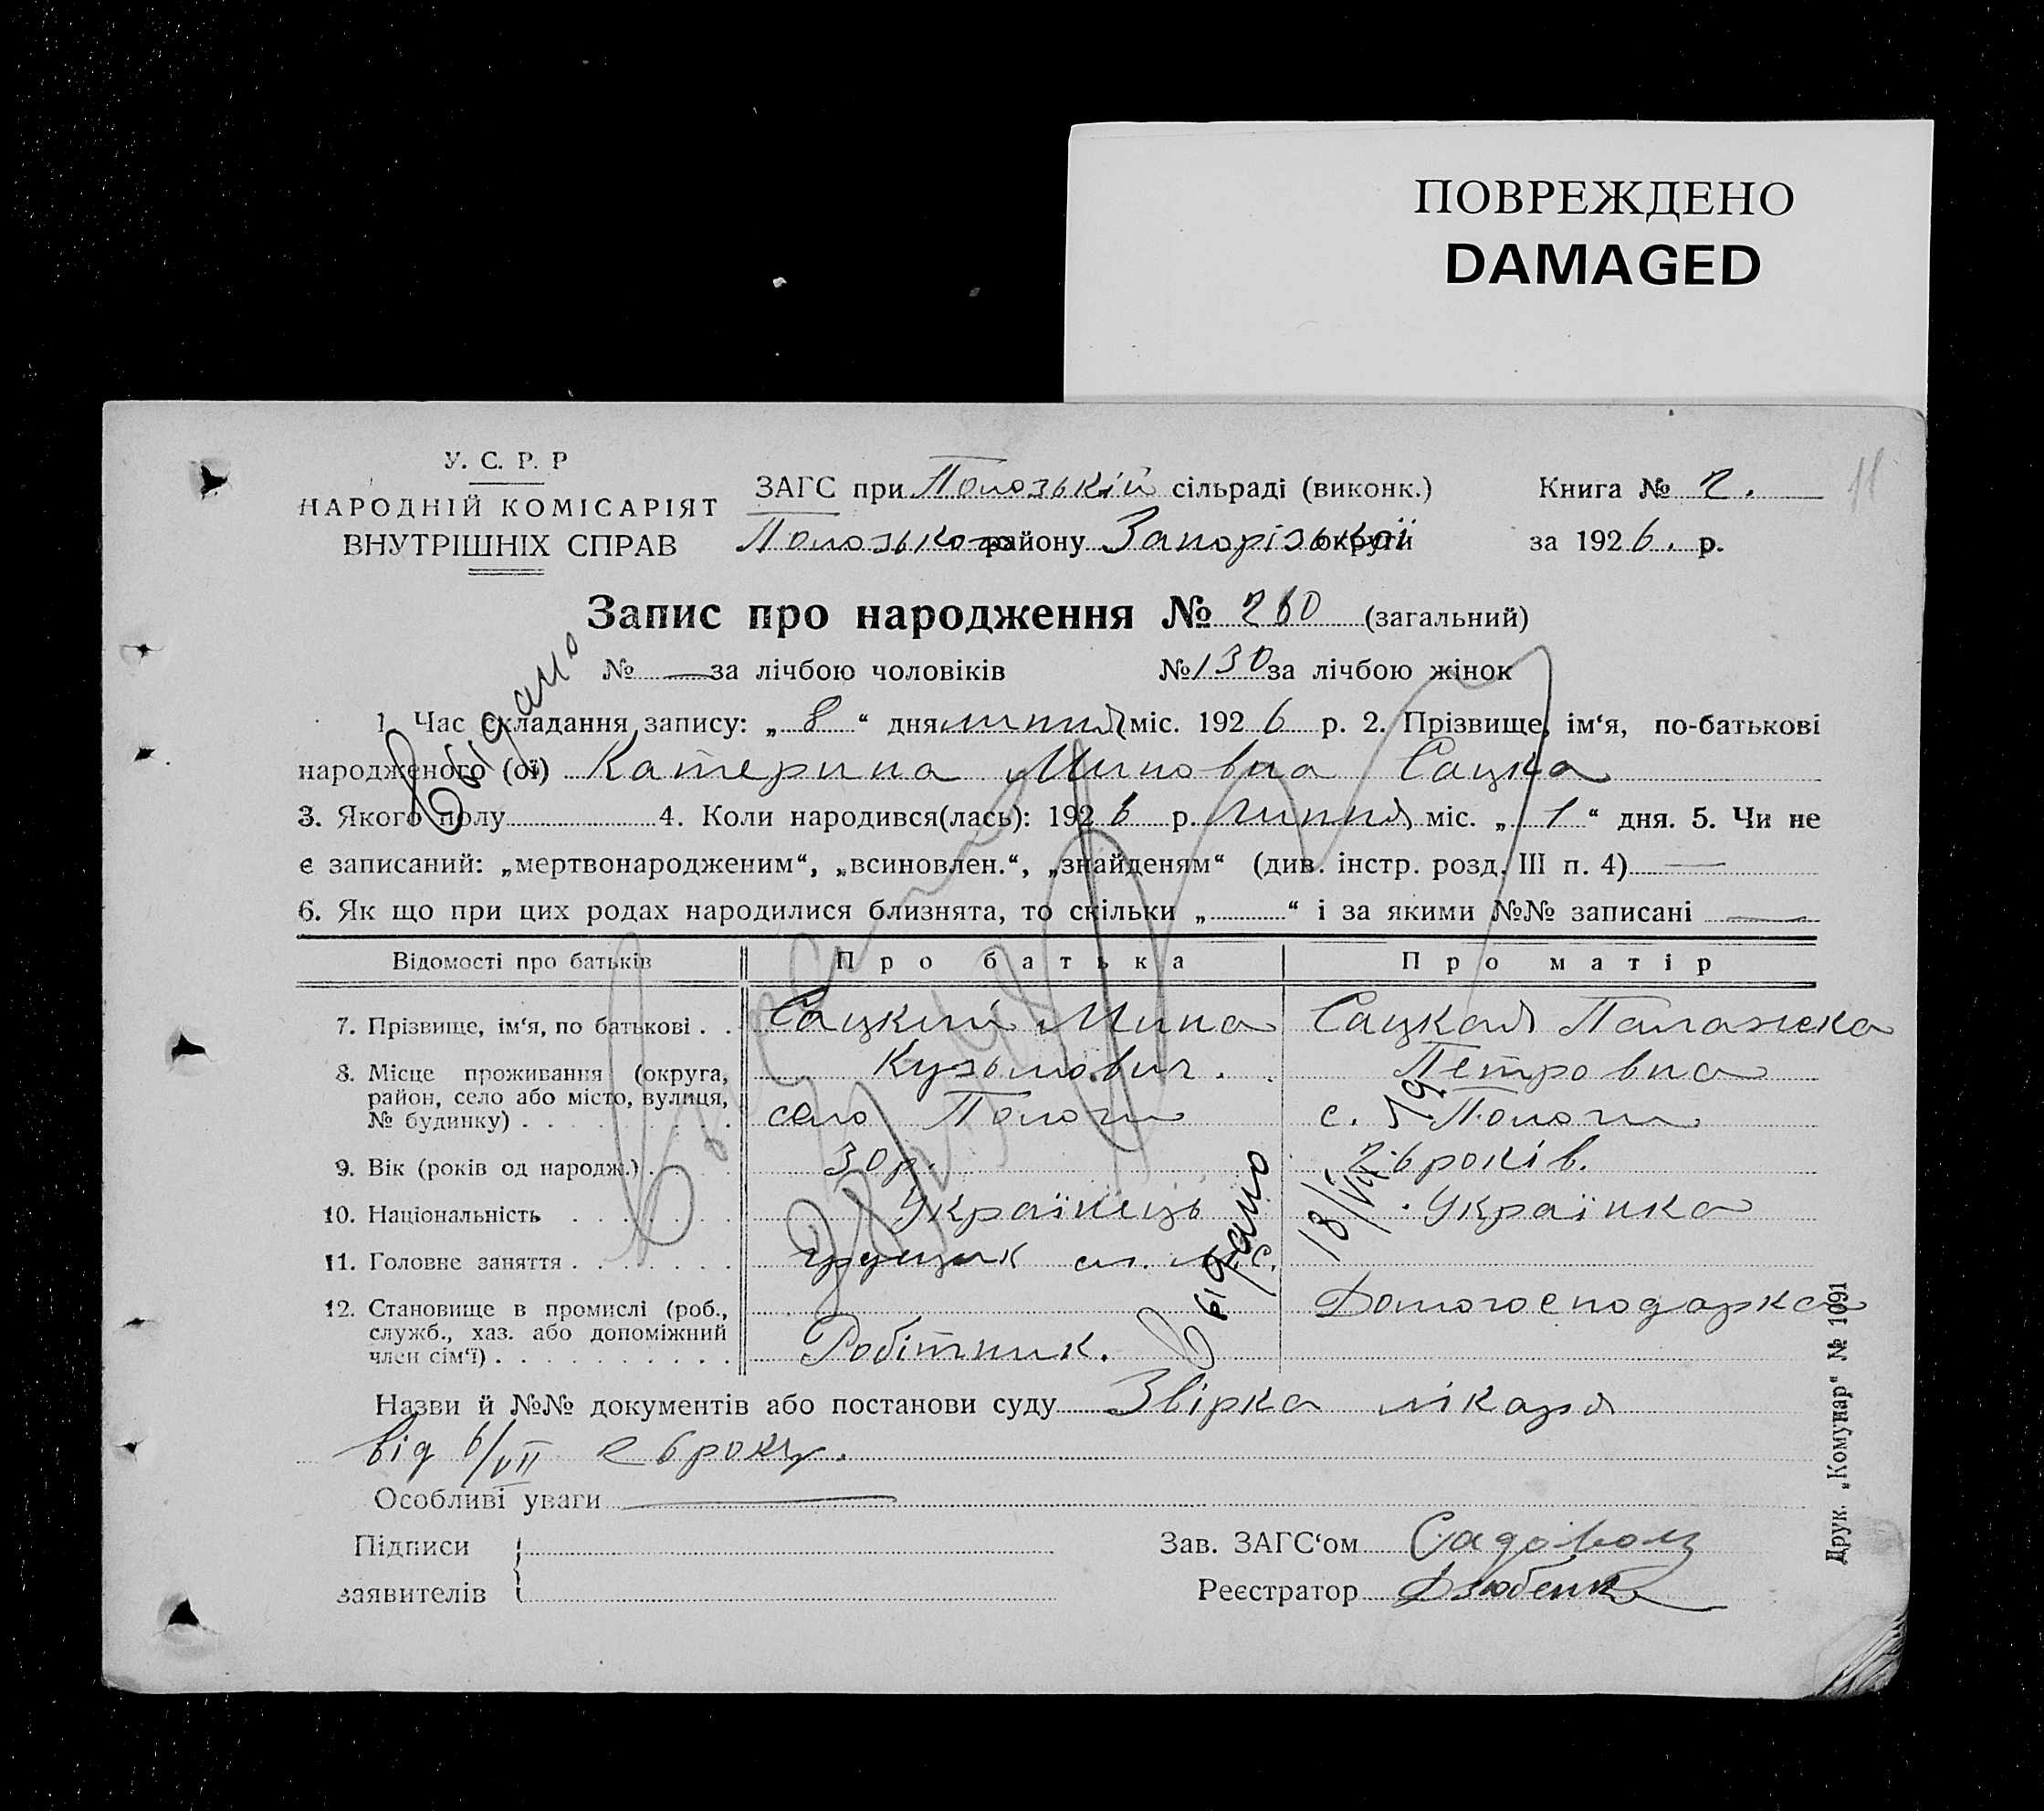 ПОВРЕЖДЕНО
DAMAGED
11
У. С. Р. Р
НАРОДНІЙ КОМІСАРІЯТ
ВНУТРІШНІХ СПРАВ
ЗАГС при Пологській сільраді (виконк.) Книга № 2.
Пологського району Запорізької округи за 1926. р.
Запис про народження № 260 (загальний)
№ — за лічбою чоловіків № 130 за лічбою жінок
1. Час складання запису: „ 8 “ дня липня міс. 1926 р. 2. Прізвище, ім‘я, по-батькові
народженого (ої) Катерина Миновна Сацка
3. Якого полу 4. Коли народився(лась): 1926 р. липня міс. „ 1 “ дня. 5. Чи не
є записаний: „мертвонародженим“, „всиновлен.“, „знайденям“ (див. інстр. розд. III п. 4) —
6. Як що при цих родах народилися близнята, то скільки „ “ і за якими №№ записані —
Відомості про батьків Про батька Про матір
7. Прізвище, ім‘я, по батькові . . Сацкий Мина Кузьмович. Сацкая Палажка Петровна
8. Місце проживання (округа, район, село або місто, вулиця, № будинку) село Пологи с. Пологи
9. Вік (років од народж.) 30 р. 26 років.
10. Національність Українець Українка
11. Головне заняття грущик ст.
12. Становище в промислі (роб., служб., хаз. або допоміжний член сім‘ї) Робітник. Домогосподарка
Назви й №№ документів або постанови суду Звірка лікаря
від 6/VII 26 року.
Особливі уваги —
Підписи
заявителів
Зав. ЗАГС‘ом
Реєстратор Дзюбенко
Видано
Видано
18/VII
Друк. „Комунар“ № 1091